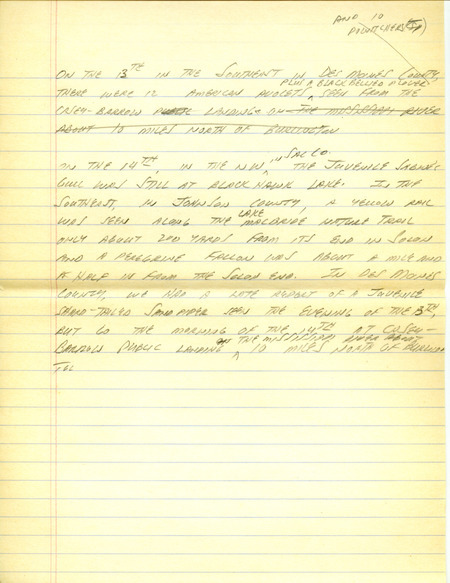 AND 10
DOWITCHERS (5)
ON THE 13TH IN THE SOUTHEAST IN DES MOINES COUNTY,
PLUS A BLACK BELLIED PLOVER
THERE WERE 12 AMERICAN AVOCETS ^ SEEN FROM THE
CASEY-BARROW PUBLIC LANDING ON THE MISSISSIPPI RIVER
ABOUT 10 MILES NORTH OF BURLINGTON
IN SAC CO.
ON THE 14TH, IN THE NW, ^ THE JUVENILE SABINE'S
GULL WAS STILL AT BLACK HAWK LAKE. IN THE
SOUTHEAST, IN JOHNSON COUNTY, A YELLOW RAIL
LAKE
WAS SEEN ALONG THE ^ MACBRIDE NATURE TRAIL
ONLY ABOUT 200 YARDS FROM ITS END IN SOLON
AND A PEREGRINE FALCON WAS ABOUT A MILE AND
A HALF IN FROM THE SOLON END. IN DES MOINES
COUNTY, WE HAD A LATE REPORT OF A JUVENILE
SHARP-TAILED SANDPIPER SEEN THE EVENING OF THE 13TH,
BUT GO THE MORNING OF THE 14TH AT CASEY-
ON THE MISSISSIPPI RIVER ABOUT
BARROW PUBLIC LANDING ^ 10 MILES NORTH OF BURLING